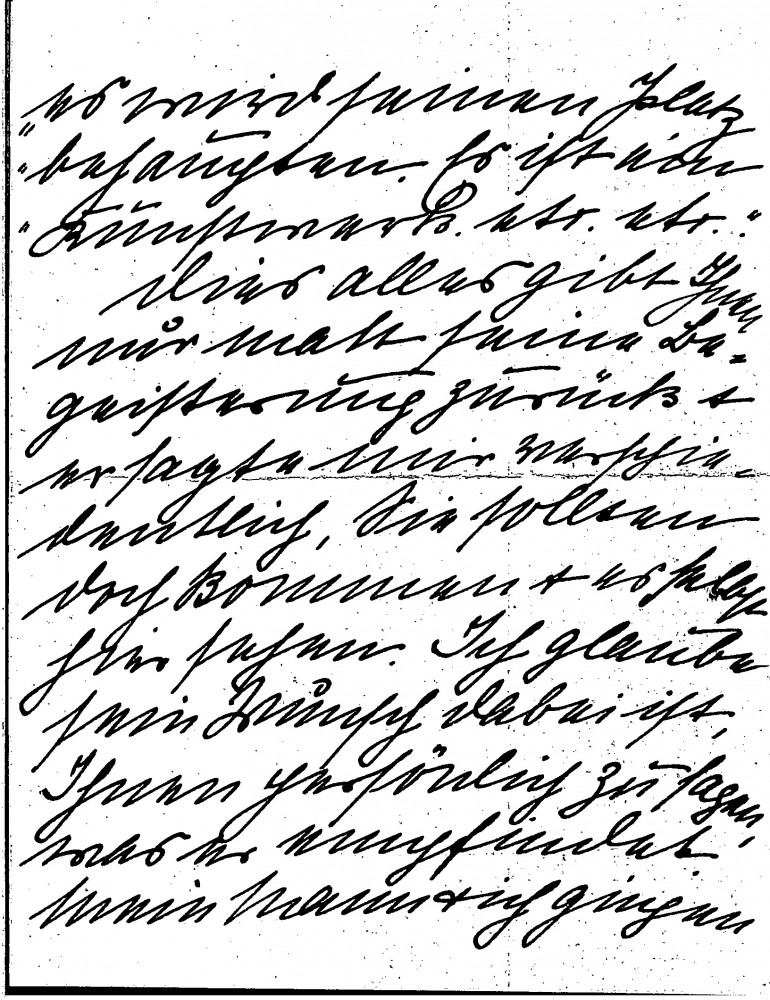 „es wird seinen Platz
„behaupten. Es ist ein
„Kunstwerk. etc. etc.“
Dies alles gibt Ihnen
nur matt seine Be=
geisterung zurück +
er sagte mir verschie=
dentlich, Sie sollten
doch kommen + es selbst
hier sehen. Ich glaube
sein Wunsch dabei ist,
Ihnen persönlich zu sagen,
was er empfindet.
Mein Mann + ich gingen